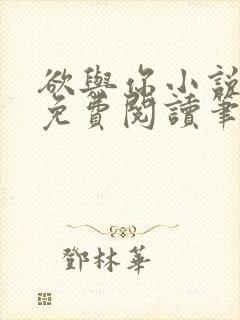 欲與你小說
免費閱讀筆
鄧林華